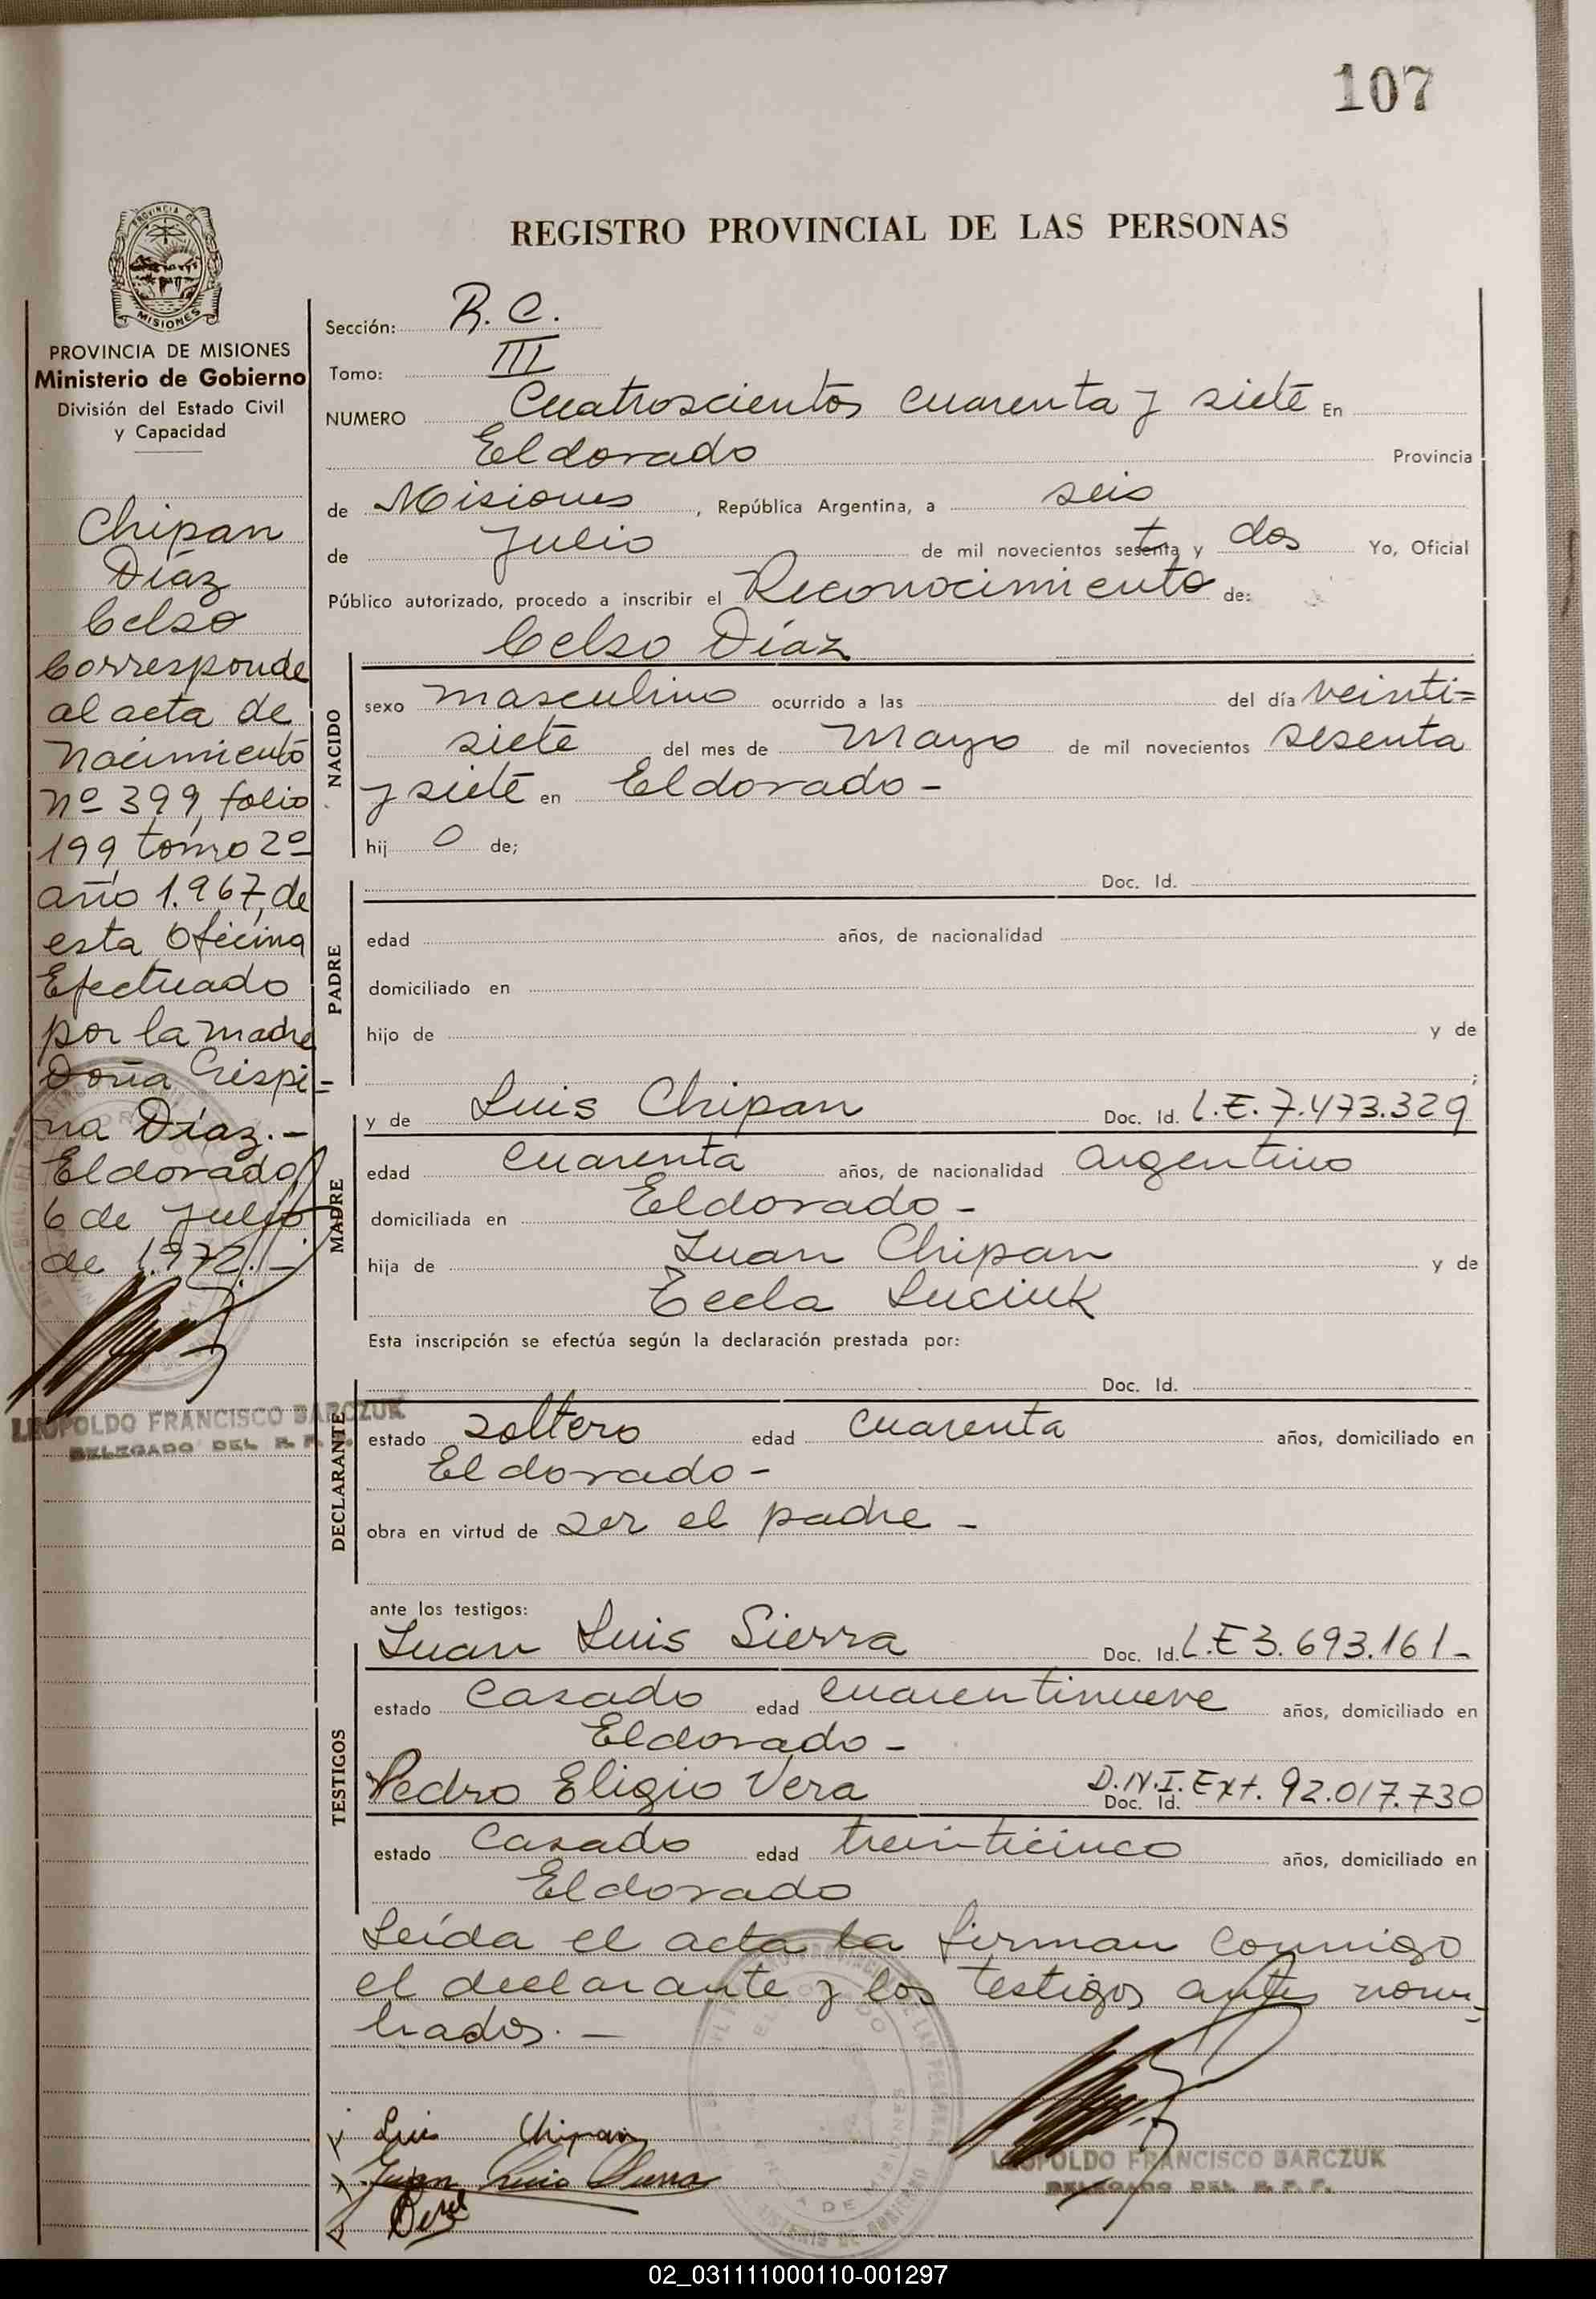 107
REGISTRO PROVINCIAL DE LAS PERSONAS
PROVINCIA DE
MISIONES
PROVINCIA DE MISIONES
Ministerio de Gobierno
División del Estado Civil
y Capacidad
Chipan
Díaz
Celso
Corresponde
al acta de
Nacimiento
Nº 399, folio
199, tomo 2º
año 1.967, de
esta Oficina
Efectuado
por la madre
Doña Crispi=
na Díaz.-
Eldorado,
6 de Julio
de 1.972.-
LEOPOLDO FRANCISCO BARCZUK
DELEGADO DEL R. P. P.
Sección: R. C.
Tomo: III
NUMERO Cuatroscientos cuarenta y siete En
Eldorado Provincia
de Misiones, República Argentina, a seis
de Julio de mil novecientos setenta y dos Yo, Oficial
Público autorizado, procedo a inscribir el Reconocimiento de:
Celso Díaz
NACIDO
sexo masculino ocurrido a las del día veinti=
siete del mes de Mayo de mil novecientos sesenta
y siete en Eldorado -
hij o de;
PADRE
Doc. Id.
edad años, de nacionalidad
domiciliado en
hijo de y de
;
MADRE
y de Luis Chipan Doc. Id. L.E. 7.473.329
edad cuarenta años, de nacionalidad argentino
domiciliada en Eldorado -
hija de Juan Chipan y de
Tecla Luciuk
Esta inscripción se efectúa según la declaración prestada por:
DECLARANTE
Doc. Id.
estado soltero edad cuarenta años, domiciliado en
Eldorado -
obra en virtud de ser el padre -
ante los testigos:
TESTIGOS
Juan Luis Sierra Doc. Id. L.E 3.693.161-
estado casado edad cuarentinueve años, domiciliado en
Eldorado -
Pedro Eligio Vera Doc. Id. D.N.I. Ext. 92.017.730
estado casado edad treinticinco años, domiciliado en
Eldorado
Leída el acta la firman conmigo
el declarante y los testigos antes nom-
brados. -
Luis Chipan
Juan Luis Sierra
LEOPOLDO FRANCISCO BARCZUK
DELEGADO DEL R. P. P.
02_031111000110-001297